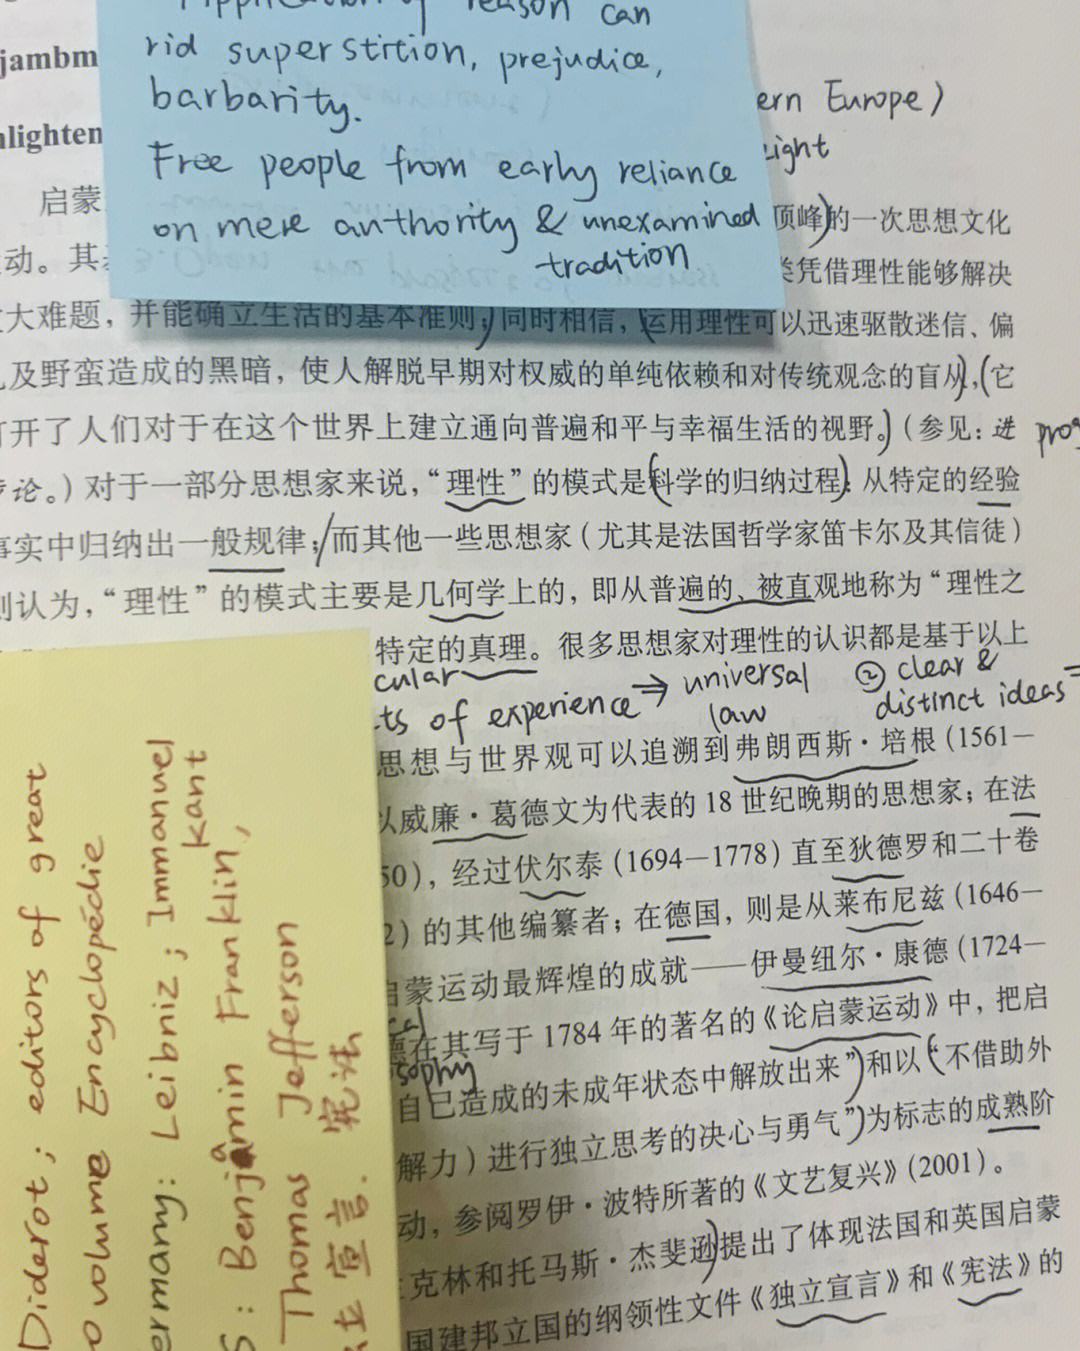 Application of reason can
rid superstition, prejudice,
barbarity.
Free people from early reliance
on mere authority & unexamined
tradition
jambm
nlighten
ern Europe)
light
启蒙
顶峰)的一次思想文化
动。其
类凭借理性能够解决
大难题，并能确立生活的基本准则；同时相信，运用理性可以迅速驱散迷信、偏
及野蛮造成的黑暗，使人解脱早期对权威的单纯依赖和对传统观念的盲从，(它
打开了人们对于在这个世界上建立通向普遍和平与幸福生活的视野。)（参见：进
prog
步论。）对于一部分思想家来说，“理性”的模式是(科学的归纳过程)：从特定的经验
事实中归纳出一般规律；/而其他一些思想家（尤其是法国哲学家笛卡尔及其信徒）
则认为，“理性”的模式主要是几何学上的，即从普遍的、被直观地称为“理性之
特定的真理。很多思想家对理性的认识都是基于以上
cular
cts of experience ⇒ universal law
② clear & distinct ideas ⇒
思想与世界观可以追溯到弗朗西斯·培根（1561—
以威廉·葛德文为代表的18世纪晚期的思想家；在法
50），经过伏尔泰（1694—1778）直至狄德罗和二十卷
2）的其他编纂者；在德国，则是从莱布尼兹（1646—
启蒙运动最辉煌的成就——伊曼纽尔·康德（1724—
cal
德在其写于1784年的著名的《论启蒙运动》中，把启
osophy
自己造成的未成年状态中解放出来”)和以(“不借助外
解力）进行独立思考的决心与勇气”)为标志的成熟阶
动，参阅罗伊·波特所著的《文艺复兴》(2001)。
克林和托马斯·杰斐逊)提出了体现法国和英国启蒙
国建邦立国的纲领性文件《独立宣言》和《宪法》的
Diderot; editors of great
o volume Encyclopédie
ermany: Leibniz; Immanuel
Kant
S: Benjamin Franklin,
Thomas Jefferson
立宣言. 宪法